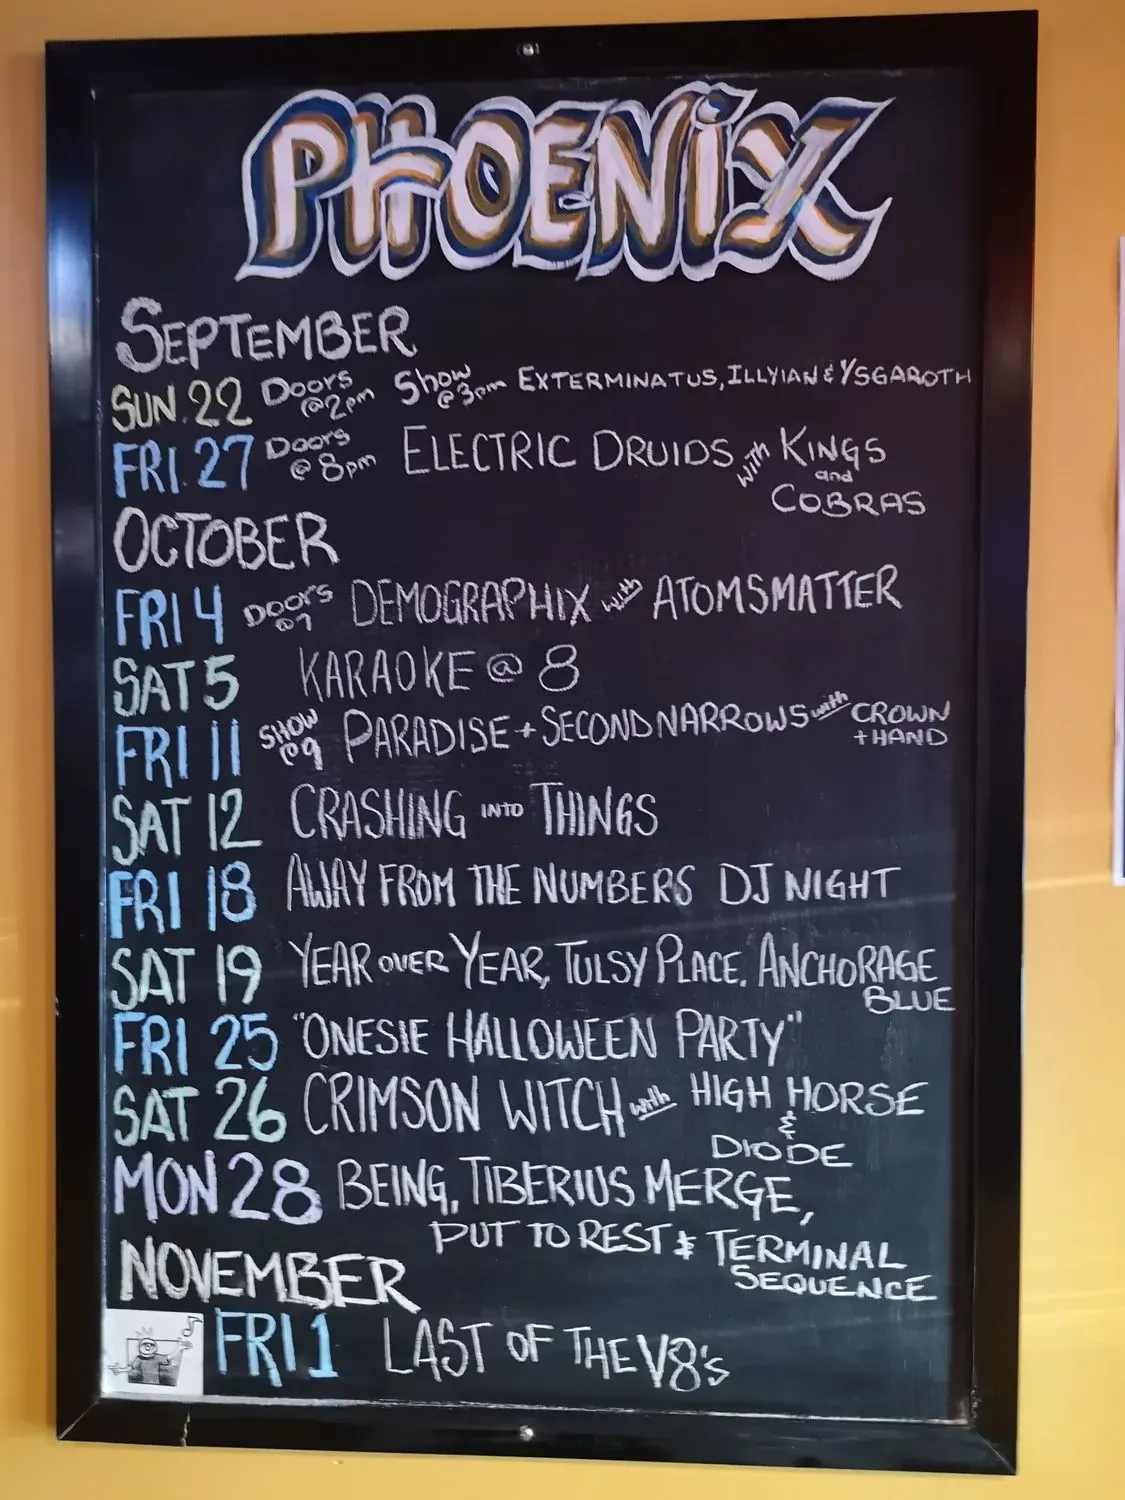 PHOENiX
SEPTEMBER
SUN. 22 DOORS @2pm SHOW @3pm EXTERMINATUS, ILLYIAN & YSGAROTH
FRI. 27 DOORS @ 8pm ELECTRIC DRUIDS with KINGS
and
COBRAS
OCTOBER
FRI 4 DOORS @7 DEMOGRAPHIX with ATOMSMATTER
SAT 5 KARAOKE @ 8
FRI 11 SHOW @9 PARADISE + SECOND NARROWS with CROWN
+ HAND
SAT 12 CRASHING INTO THINGS
FRI 18 AWAY FROM THE NUMBERS DJ NIGHT
SAT 19 YEAR OVER YEAR, TULSY PLACE. ANCHORAGE
BLUE
FRI 25 "ONESIE HALLOWEEN PARTY"
SAT 26 CRIMSON WITCH with HIGH HORSE
&
DIODE
MON 28 BEING, TIBERIUS MERGE,
PUT TO REST & TERMINAL
SEQUENCE
NOVEMBER
FRI 1 LAST OF THE V8's